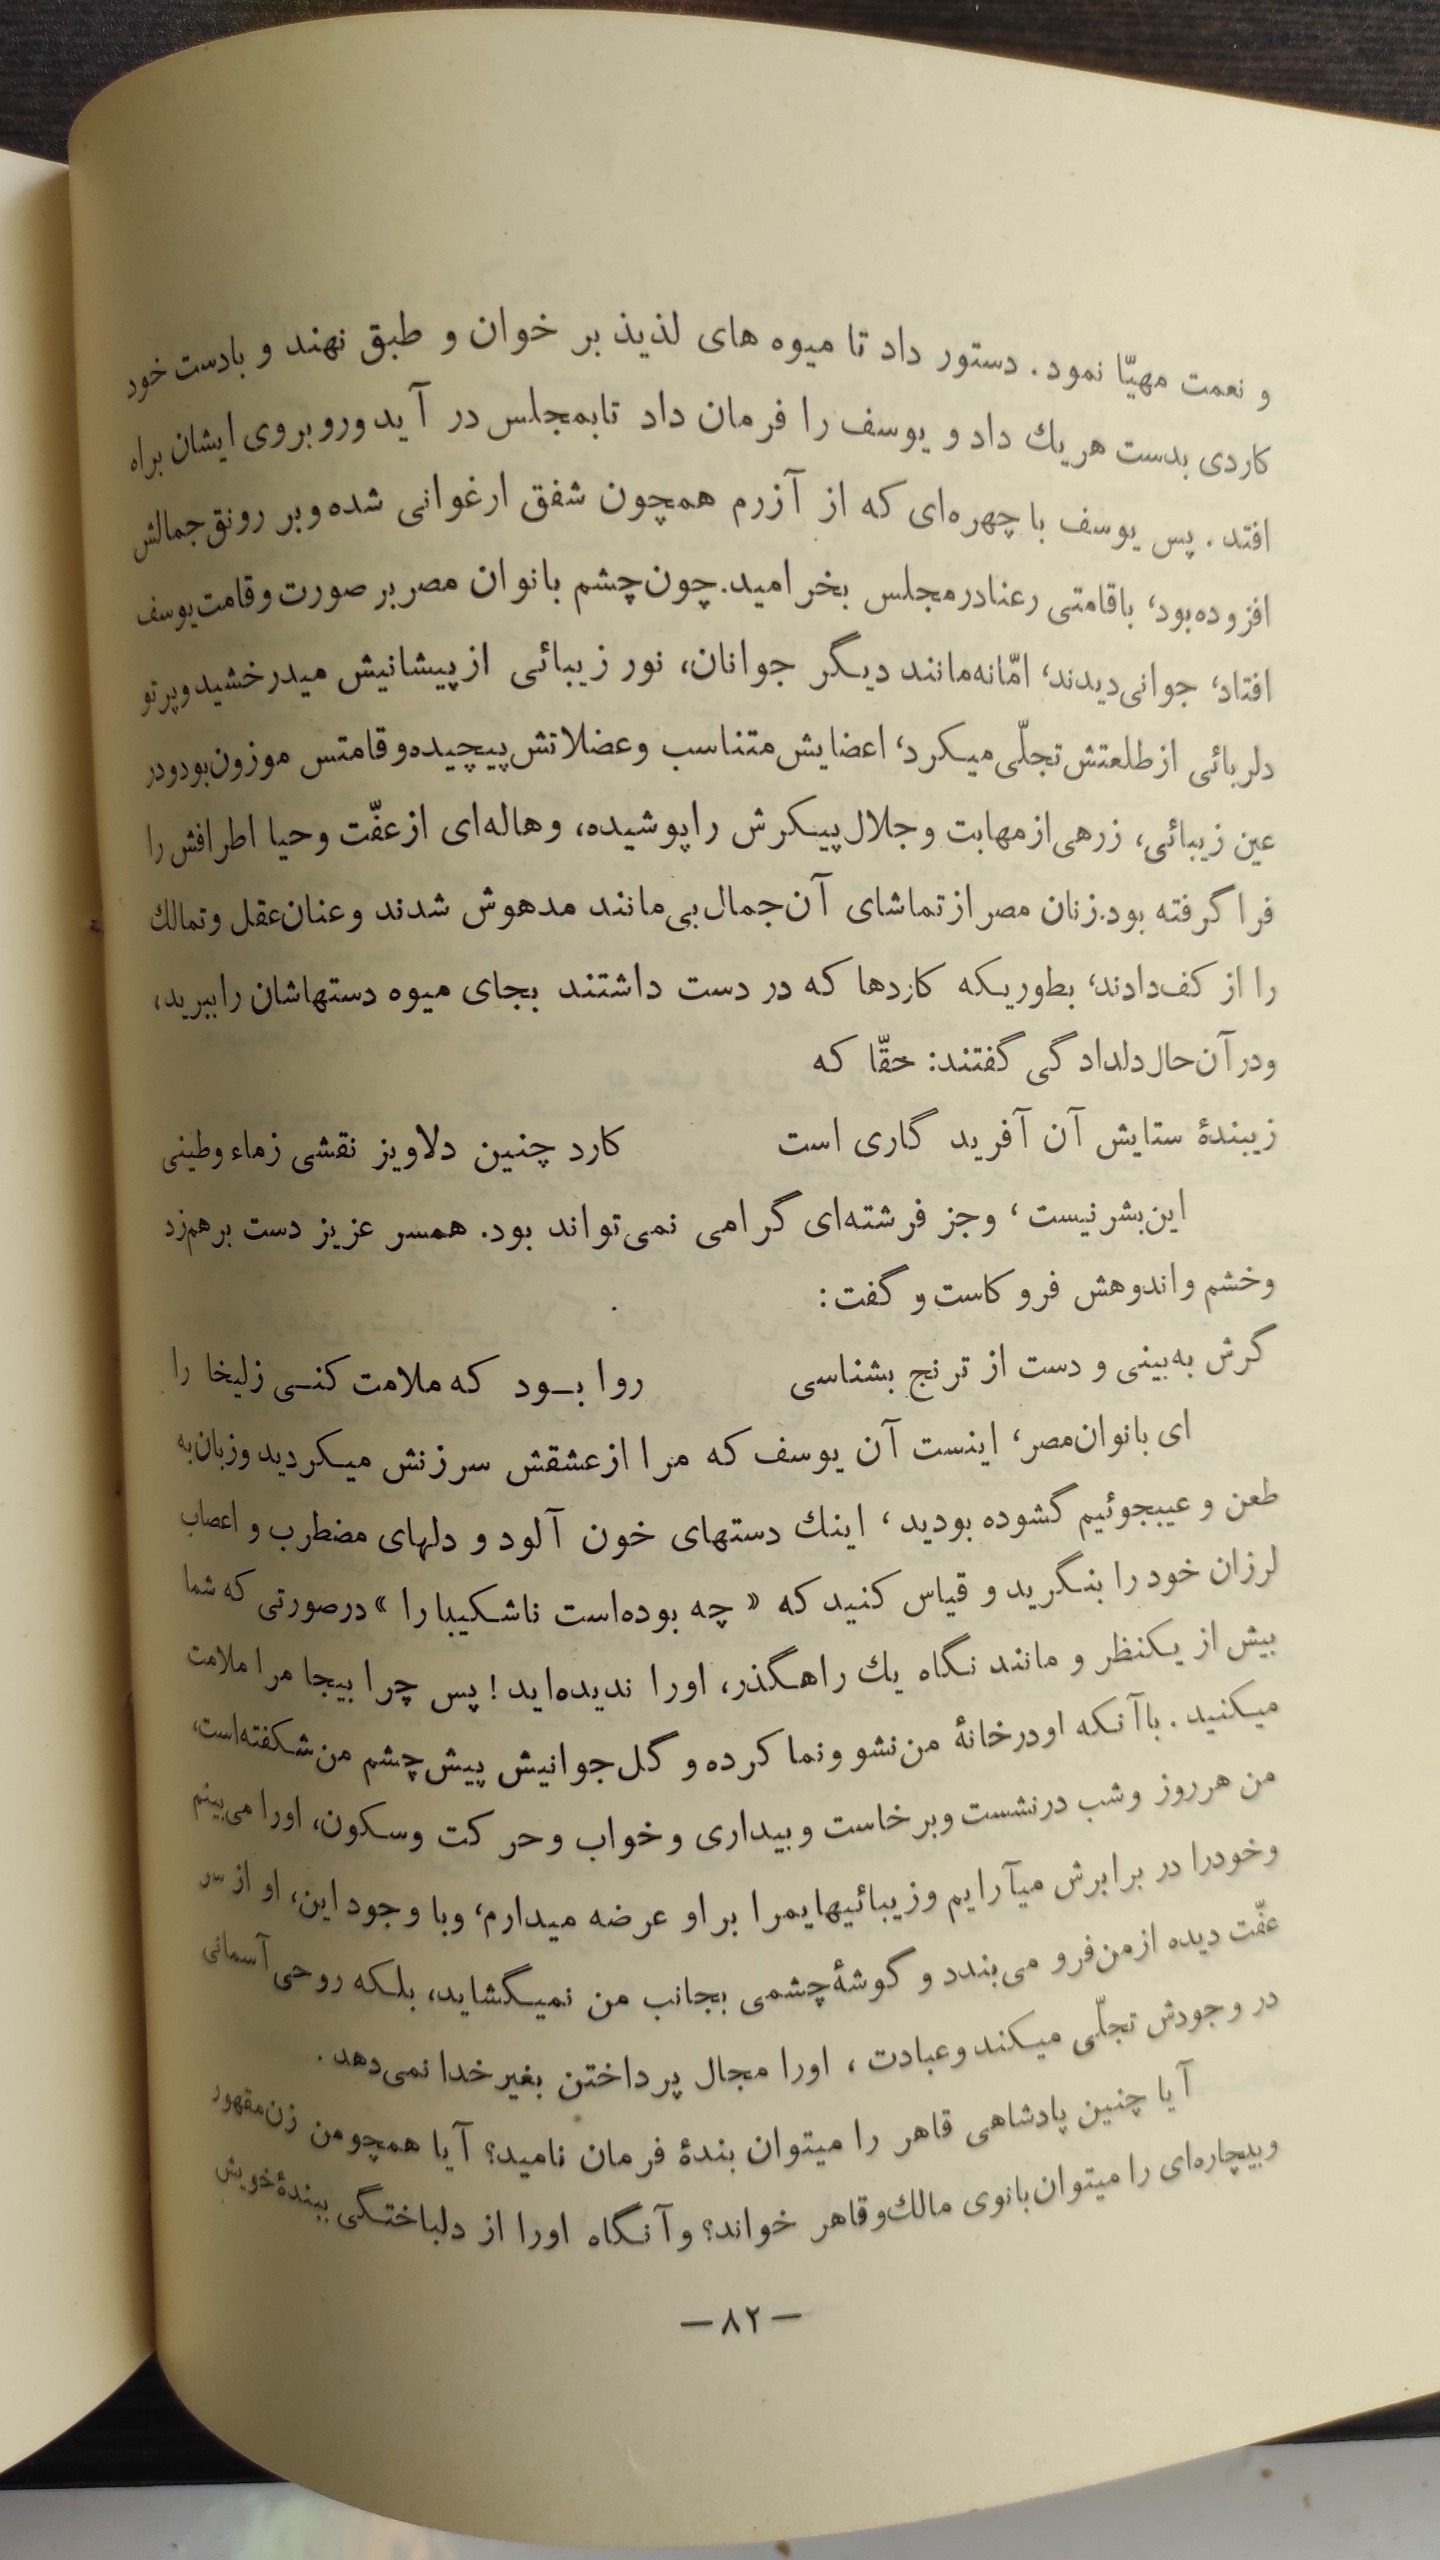 و نعمت مهیّا نمود. دستور داد تا میوه های لذیذ بر خوان و طبق نهند و بادست خود
کاردی بدست هریك داد و یوسف را فرمان داد تابمجلس در آید وروبروی ایشان براه
افتد. پس یوسف باچهره‌ای که از آزرم همچون شفق ارغوانی شده وبر رونق جمالش
افزوده‌بود، باقامتی رعنادرمجلس بخرامید. چون‌چشم بانوان مصربر صورت وقامت‌یوسف
افتاد، جوانی‌دیدند، امّانه‌مانند دیگر جوانان، نور زیبائی ازپیشانیش میدرخشیدوپرتو
دلربائی ازطلعتش‌تجلّی‌میکرد، اعضایش‌متناسب وعضلاتش‌پیچیده‌وقامتس موزون‌بودودر
عین زیبائی، زرهی‌ازمهابت وجلال‌پیکرش راپوشیده، وهاله‌ای ازعفّت وحیا اطرافش را
فراگرفته بود. زنان مصر ازتماشای آن‌جمال‌بی‌مانند مدهوش شدند وعنان‌عقل وتمالك
را از کف‌دادند، بطوریکه کاردها که در دست داشتند بجای میوه دستهاشان راببرید،
ودرآن‌حال‌دلدادگی گفتند: حقّا که
زیبندهٔ ستایش آن آفرید گاری است کارد چنین دلاویز نقشی زماء وطینی
این‌بشرنیست، وجز فرشته‌ای گرامی نمی‌تواند بود. همسر عزیز دست برهم‌زد
وخشم واندوهش فروکاست و گفت:
گرش به‌بینی و دست از ترنج بشناسی روا بـود که ملامت کنـی زلیخا را
ای بانوان‌مصر، اینست آن یوسف که مرا ازعشقش سرزنش میکردید وزبان‌به
طعن و عیبجوئیم گشوده بودید، اینك دستهای خون آلود و دلهای مضطرب و اعصاب
لرزان خود را بنگرید و قیاس کنید که « چه بوده‌است ناشکیبا را » درصورتی که شما
بیش از یکنظر و مانند نگاه یك راهگذر، اورا ندیده‌اید! پس چرا بیجا مرا ملامت
میکنید. باآنکه اودرخانهٔ من‌نشو ونما کرده و گل‌جوانیش پیش‌چشم من‌شکفته‌است،
من هرروز وشب درنشست وبرخاست وبیداری وخواب وحرکت وسکون، اورا می‌بینم
وخودرا در برابرش میآرایم وزیبائیهایمرا براو عرضه میدارم، وبا وجوداین، او از سر
عفّت دیده ازمن‌فرو می‌بندد و گوشهٔ‌چشمی بجانب من نمیگشاید، بلکه روحی‌آسمانی
در وجودش تجلّی میکند وعبادت، اورا مجال پرداختن بغیرخدا نمی‌دهد.
آیا چنین پادشاهی قاهر را میتوان بندهٔ فرمان نامید؟ آیا همچومن زن‌مقهور
وبیچاره‌ای را میتوان‌بانوی مالك‌وقاهر خواند؟ وآنگاه اورا از دلباختگی ببندهٔ‌خویش
—۸۲—